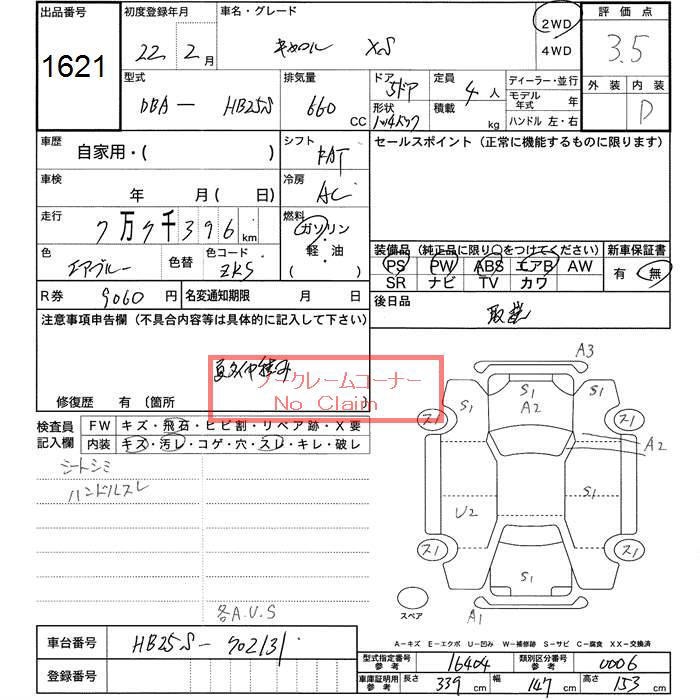 出品番号 初度登録年月 車名・グレード 2WD 評価点
1621 22年 2月 キャロル XS 4WD 3.5
型式 排気量 ドア 定員 ディーラー・並行 外装 内装
DBA－HB25S 660 CC 5ドア 4人 モデル年式 年 D
形状 積載 kg ハンドル 左・右
車歴 自家用・( ) シフト FAT セールスポイント (正常に機能するものに限ります)
車検 年 月( 日) 冷房 AC
走行 7万7千396km 燃料 ガソリン・軽・油 ( )
装備品 (純正品に限り○をつけてください) 新車保証書
色 エアブルー 色替 色コード ZKS PS PW ABS エアB AW 有 無
SR ナビ TV カワ
R券 9060円 名変通知期限 月 日 後日品 取説
注意事項申告欄 (不具合内容等は具体的に記入して下さい)
ノークレームコーナー
No Claim
修復歴 有 〔箇所
検査員記入欄 FW キズ・飛石・ヒビ割・リペア跡・X要
内装 キズ・汚レ・コゲ・穴・スレ・キレ・破レ
シートシミ
ハンドルスレ
各A.U.S
A3
S1 S1 S1
A2
ス1 ス1
A2
U2 S1
ス1 ス1
S1
スペア A1
A－キズ E－エクボ U－凹み W－補修跡 S－サビ C－腐食 XX－交換済
車台番号 HB25S－702131
登録番号
型式指定番号 参考 16404 類別区分番号 参考 0006
車庫証明用 参考 長さ 339 cm 幅 147 cm 高さ 153 cm